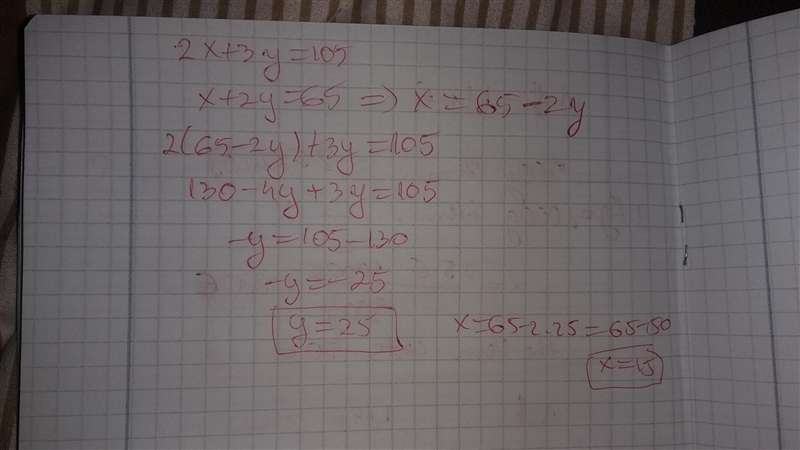 2x+3y=105
x+2y=65 => x=65-2y
2(65-2y)+3y=105
130-4y+3y=105
-y=105-130
-y=-25
y=25
x=65-2.25=65-50
x=15